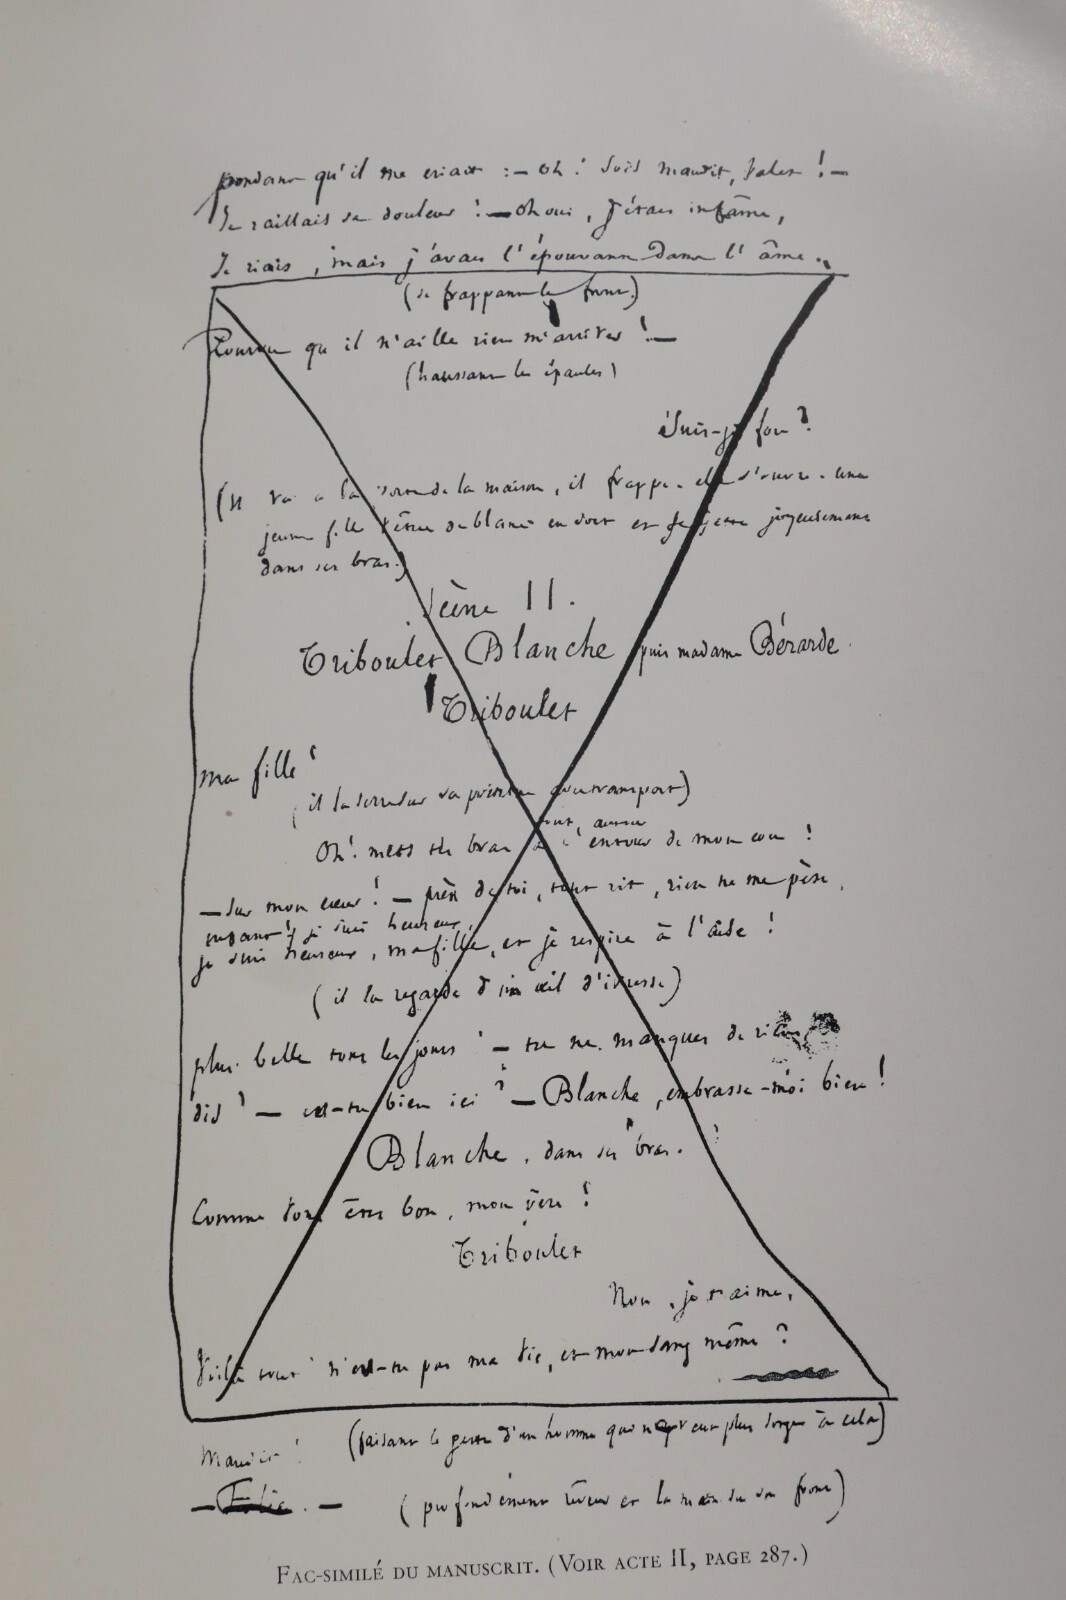 pendant qu'il me criait : — oh ! sois maudit, valet ! —
Je raillais sa douleur ! — oh oui, j'étais infâme,
Je riais, mais j'avais l'épouvante dans l'âme.
(se frappant le front)
Pourvu qu'il n'aille rien m'arriver ! —
(haussant les épaules)
Suis-je fou ?
(Il va à la porte de la maison, il frappe. elle s'ouvre. une
jeune fille vêtue de blanc en sort et se jette joyeusement
dans ses bras.)
Scène II.
Triboulet Blanche puis madame Bérarde.
Triboulet
ma fille !
(il la serre sur sa poitrine avec transport)
Oh ! mets tes bras à l'entour de mon cou !
— Sur mon cœur ! — près de toi, tout rit, rien ne me pèse,
enfant ! je suis heureux
je suis heureux, ma fille, et je respire à l'aise !
(il la regarde d'un œil d'ivresse)
plus belle tous les jours ! — tu ne manques de rien,
dis ? — es-tu bien ici ? — Blanche, embrasse-moi bien !
Blanche, dans ses bras.
Comme vous êtes bon, mon père !
Triboulet
Non, je t'aime,
Voilà tout ! n'es-tu pas ma vie, et mon sang même ?
Maudit ! (faisant le geste d'un homme qui ne veut plus songer à cela)
— Folie. — (profondément rêveur et la main sur son front)
FAC-SIMILÉ DU MANUSCRIT. (VOIR ACTE II, PAGE 287.)